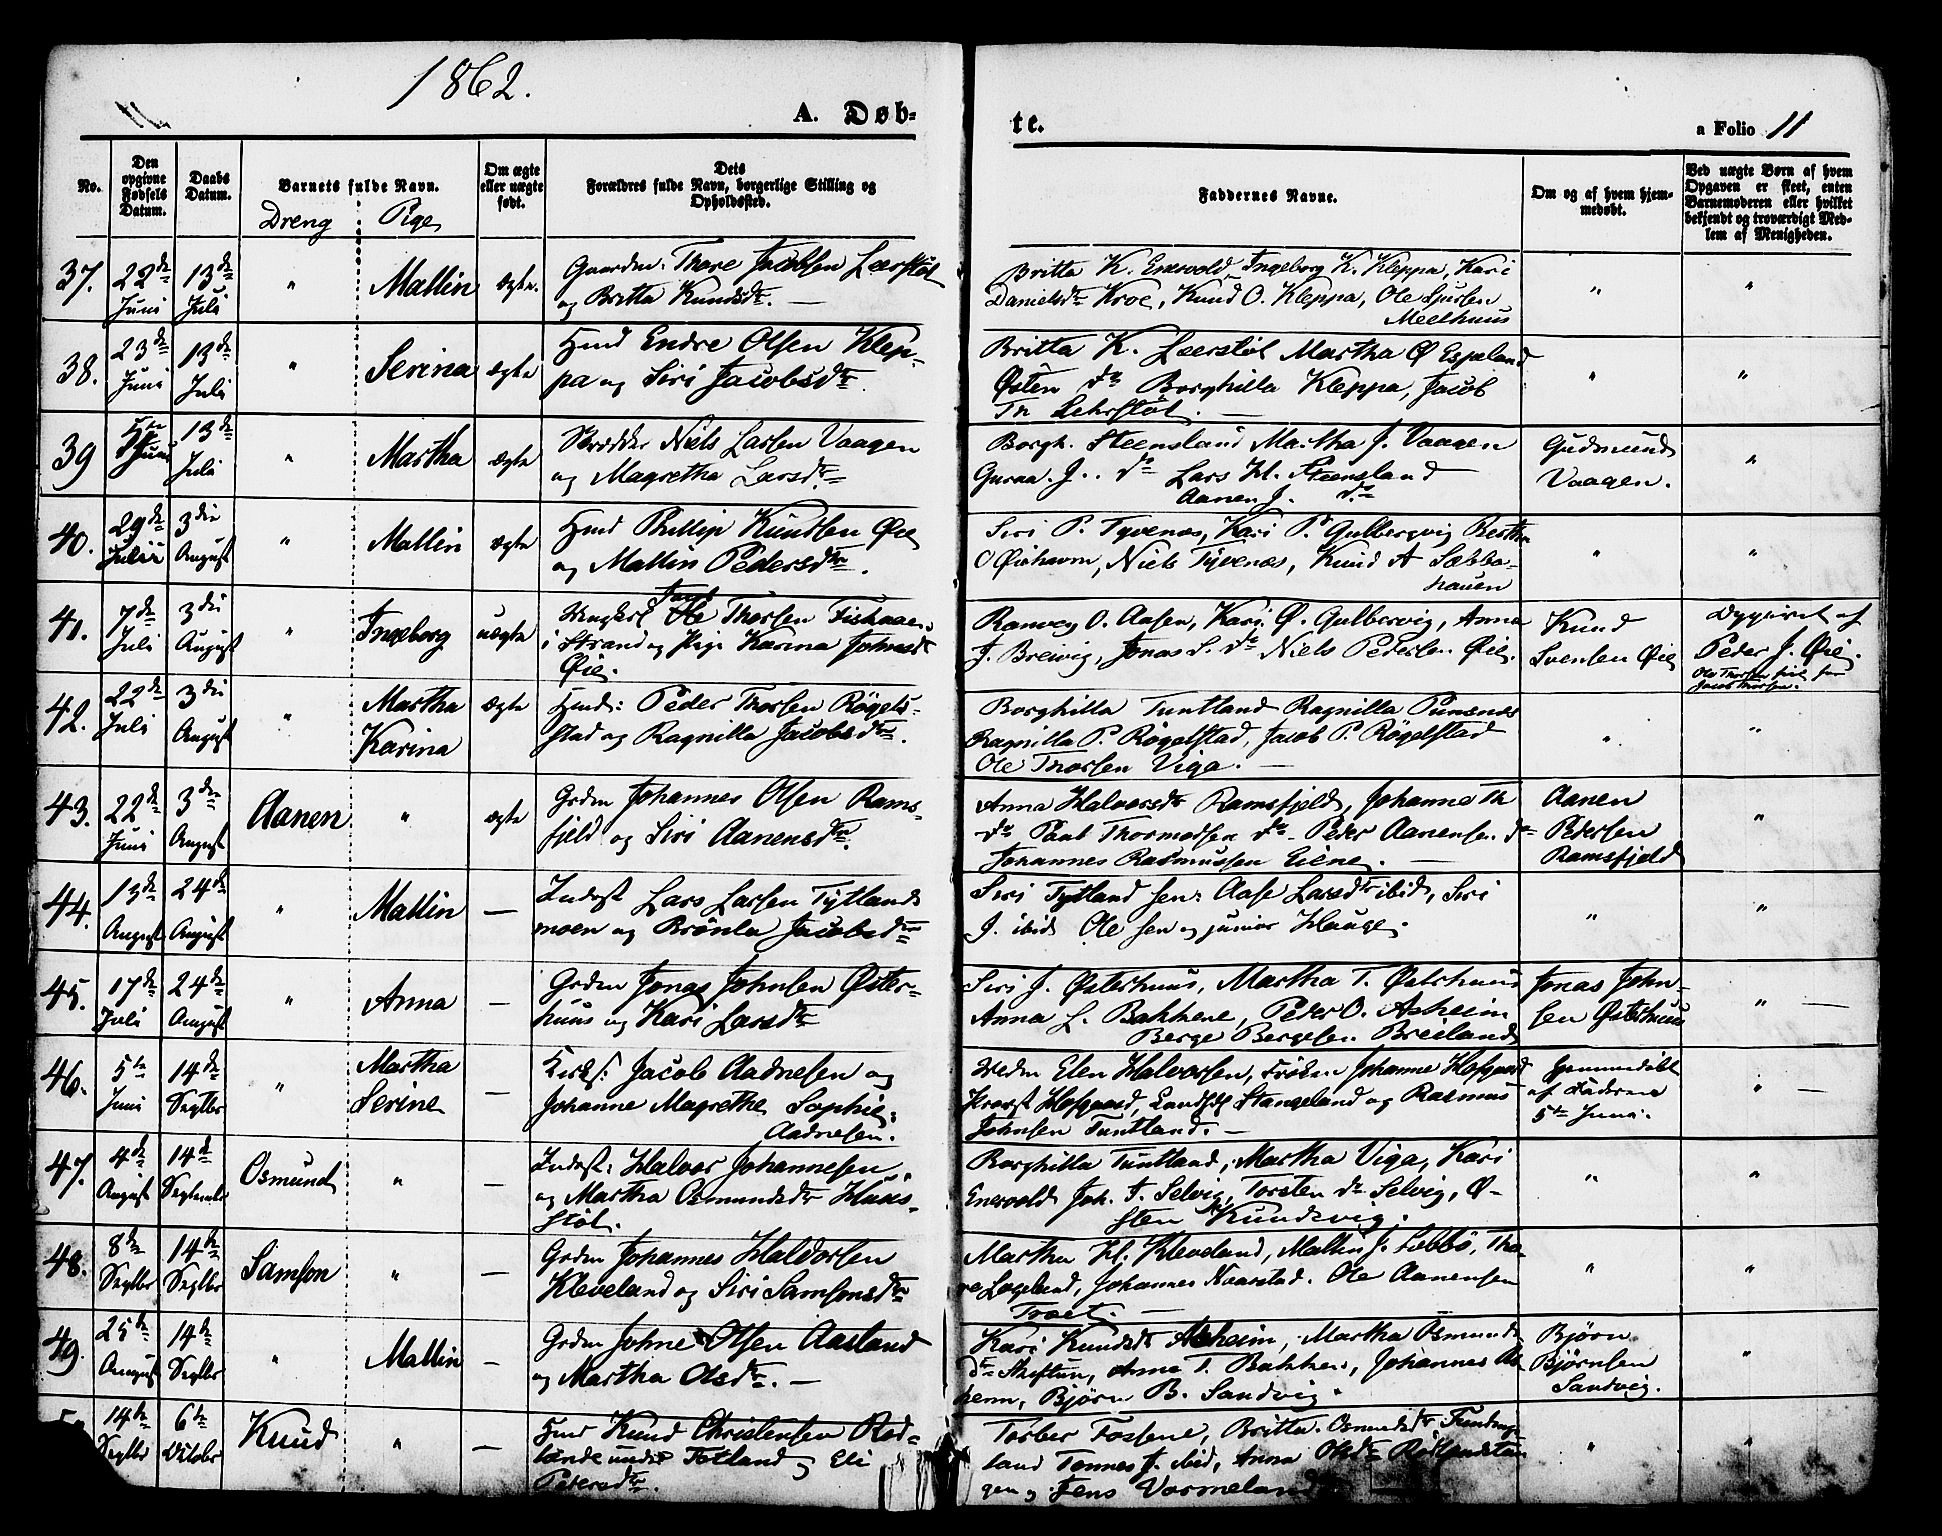 1862.
A. Døb-
te.
a Folio 11
No.
Den opgivne Fødsels Datum.
Daabs Datum.
Barnets fulde Navn.
Dreng Pige
Om ægte eller uægte født.
Dets Forældres fulde Navn, borgerlige Stilling og Opholdssted.
Faddernes Navne.
Om og af hvem hjem-
medøbt.
Ved uægte Børn af hvem
Opgaven er skeet, enten
Barnemoderen eller hvilket
bekjendt og troværdigt Med-
lem af Menigheden.
37. 22de Juni 13de Juli " Mallin ægte.
Gaardm. Thore Jacobsen Leerstøl
og Britta Knudsdtr. —
Britta K. Enevold, Ingeborg K. Kleppa, Kari
Danielsdtr Kroe, Knud O. Kleppa, Ole Sjursen
Meelhuus
" "
38. 23de Juni 13de Juli " Serina ægte
Hmd Endre Olsen Klep-
pa og Siri Jacobsdtr.
Britta K. Leerstøl Martha Ø Espeland
Østen do Borghilla Kleppa, Jacob
Th Lehrstøl. —
" "
39 Juni 13de Juli " Martha ægte
Skrædder Niels Larsen Vaagen
og Magretha Larsdtr
Borgh. Steensland Martha J. Vaagen
Guraa. J. do Lars H. Steensland
Aanen J. do
Gudmund
Vaagen.
"
40. 29de Julii 3die August " Mallin ægte
Hmd Phillip Knudsen Øie
og Mallin Pedersdtr.
Siri P. Tyvenæs, Kari P. Gulbergvig Bertha
O Øiehavn, Niels Tyvenæs, Knud A Sæbbø-
hauen
" "
41. 7de Juli 3die August " Ingeborg uægte
Ungkarl Jacob Ole Thorsen Fiskaaen
i Strand og Pige Karina Johnsdtr
Øie.
Ranvey O. Aasen, Kari Ø. Gulbervig, Anna
J. Breivig, Jonas S. do Niels Pedersen Øie.
Knud
Svensen Øie
Opgivet af
Peder J. Øie.
Ole Thorsen feil for
Jacob Thorsen.
42. 22de Juli 3die August " Martha
Karina
ægte
Hmd: Peder Thorsen Røgel-
stad og Ragnilla Jacobsdtr.
Borghilla Tuntland Ragnilla Punsnes
Ragnilla P. Røgelstad, Jacob P. Røgelstad
Ole Thorsen Viga. —
" "
43. 22de Juni 3die August Aanen " ægte
Grdm Johannes Olsen Rams-
fjeld og Siri Aanensdtr.
Anna Halvorsdtr Ramsfjeld, Johanne Th
do Paul Thormodsen do Peder Aanensen do
Johannes Rasmussen Eiene. —
Aanen
Pedersen
Ramsfjeld
"
44. 13de August 24de August " Mallin —
Inderst Lars Larsen Tytlands
moen og Brønla Jacobsdtr
Siri Tytland sen: Aase Larsdtr ibid, Siri
J. ibid Ole sen og junior Hauge.
" "
45. 17de Juli 24de August " Anna —
Grdm Jonas Johnsen Øster-
huus og Kari Larsdtr
Siri J. Østerhuus, Martha T. Østerhuus
Anna L. Bakkene, Peder O. Asheim
Berge Bergesen Breiland
Jonas John-
sen Østerhuus
" —
46. 5te Juni 14de Septbr " Martha
Serine
—
Kirks: Jacob Aadnesen og
Johanne Magrethe Sophie
Aadnesen.
Mdm Elen Halvorsen, Frøken Johanne Hofgaard
Provst Hofgaard, Landhdl Stangeland og Rasmus
Johnsen Tuntland. —
Hjemmedøbt
af Faderen
5te Juni.
" —
47. 4de August 14de September Osmund " —
Inderst: Halvor Johannesen
og Martha Osmundsdtr Huus-
støl.
Borghilla Tuntland, Martha Viga, Kari
Enevold Joh. J. Selvig, Torsten do Selvig, Ø-
sten Knudsvig.
" "
48. 8de Septbr 14de Septbr Samson " —
Grdm Johannes Haldorsen
Kleveland og Siri Samsonsdtr
Martha H. Kleveland, Mallin J. Sæbbø, Tho-
re Lageland, Johannes Naarstad. Ole Aanensen
Troet. —
" "
49. 25de August 14de Septbr " Mallin —
Grdm Johne Olsen Aasland
og Martha Olsdtr. —
Kari Knudsdtr Asheim, Martha Osmunds
dtr Skiftun, Anna T. Bakken, Johannes As-
heim, Bjørn B. Sandvig.
Bjørn
Bjørnsen
Sandvig.
"
14de Septbr 6te October Knud " —
Hmd Knud Christensen Rød-
lande under Totland og Eli
Petersdtr.
Torber Fossene, Britta Osmundsdtr Funnings-
land Tonnes J. ibid, Anna Olsdtr Rødlandstan
gen og Jens Varmeland
" "